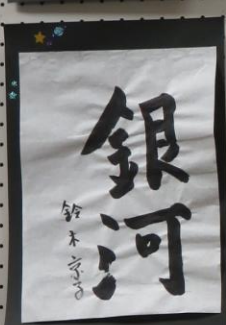 銀河
鈴木京子